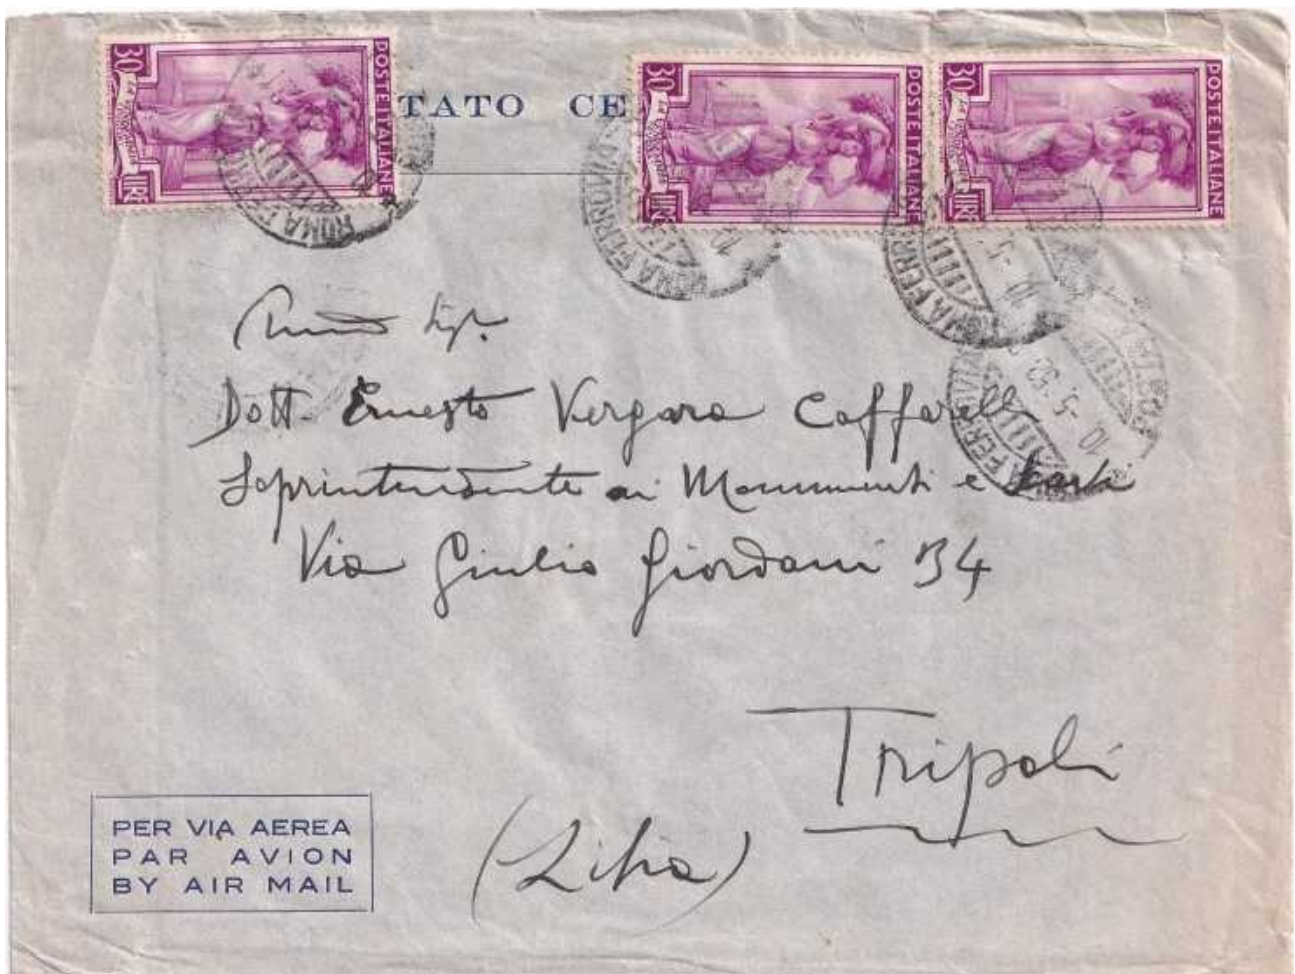 30 LIRE POSTE ITALIANE
TATO CE
30 LIRE POSTE ITALIANE
30 LIRE POSTE ITALIANE
ROMA FERROVIA
10 -5 52
Dott. Ernesto Vergara Caffarelli
Soprintendente ai Monumenti e Scavi
Via Giulio Giordani 34
Tripoli
(Libia)
PER VIA AEREA
PAR AVION
BY AIR MAIL